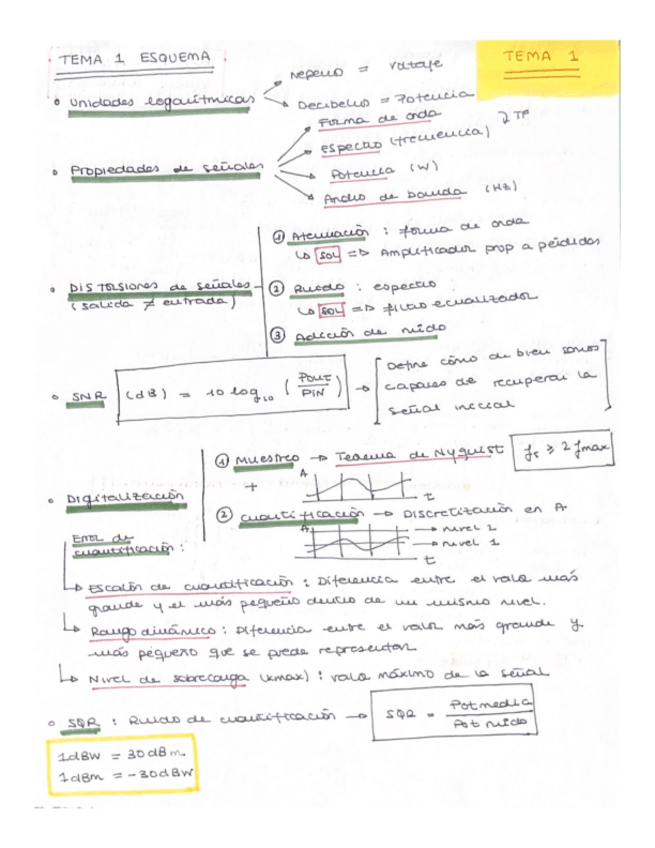 TEMA 1 ESQUEMA
TEMA 1
Neperio = Voltaje
Unidades logarítmicas
Decibelio = Potencia
Forma de onda
Espectro (frecuencia) 2 TF
Propiedades de señales
Potencia (W)
Ancho de banda (Hz)
① Atenuación : forma de onda
↳ SOL => Amplificador prop a pérdidas
DISTORSIONES de señales
(salida ≠ entrada)
② Ruido : espectro
↳ SOL => filtro ecualizador
③ Adición de ruido
SNR (dB) = 10 log10 (POUT/PIN) → [Define cómo de bien somos
capaces de recuperar la
señal inicial]
① Muestreo → Teorema de Nyquist fs ≥ 2 fmax
+
A
t
Digitalización
② Cuantificación → Discretización en A.
→ nivel 2
→ nivel 1
t
Error de
cuantificación :
↳ Escalón de cuantificación : Diferencia entre el valor más
grande y el más pequeño dentro de un mismo nivel.
↳ Rango dinámico : Diferencia entre el valor más grande y
más pequeño que se puede representar
↳ Nivel de sobrecarga (xmax) : valor máximo de la señal
SQR : Ruido de cuantificación → SQR = Pot media/Pot ruido
1dBW = 30dBm
1dBm = -30dBW